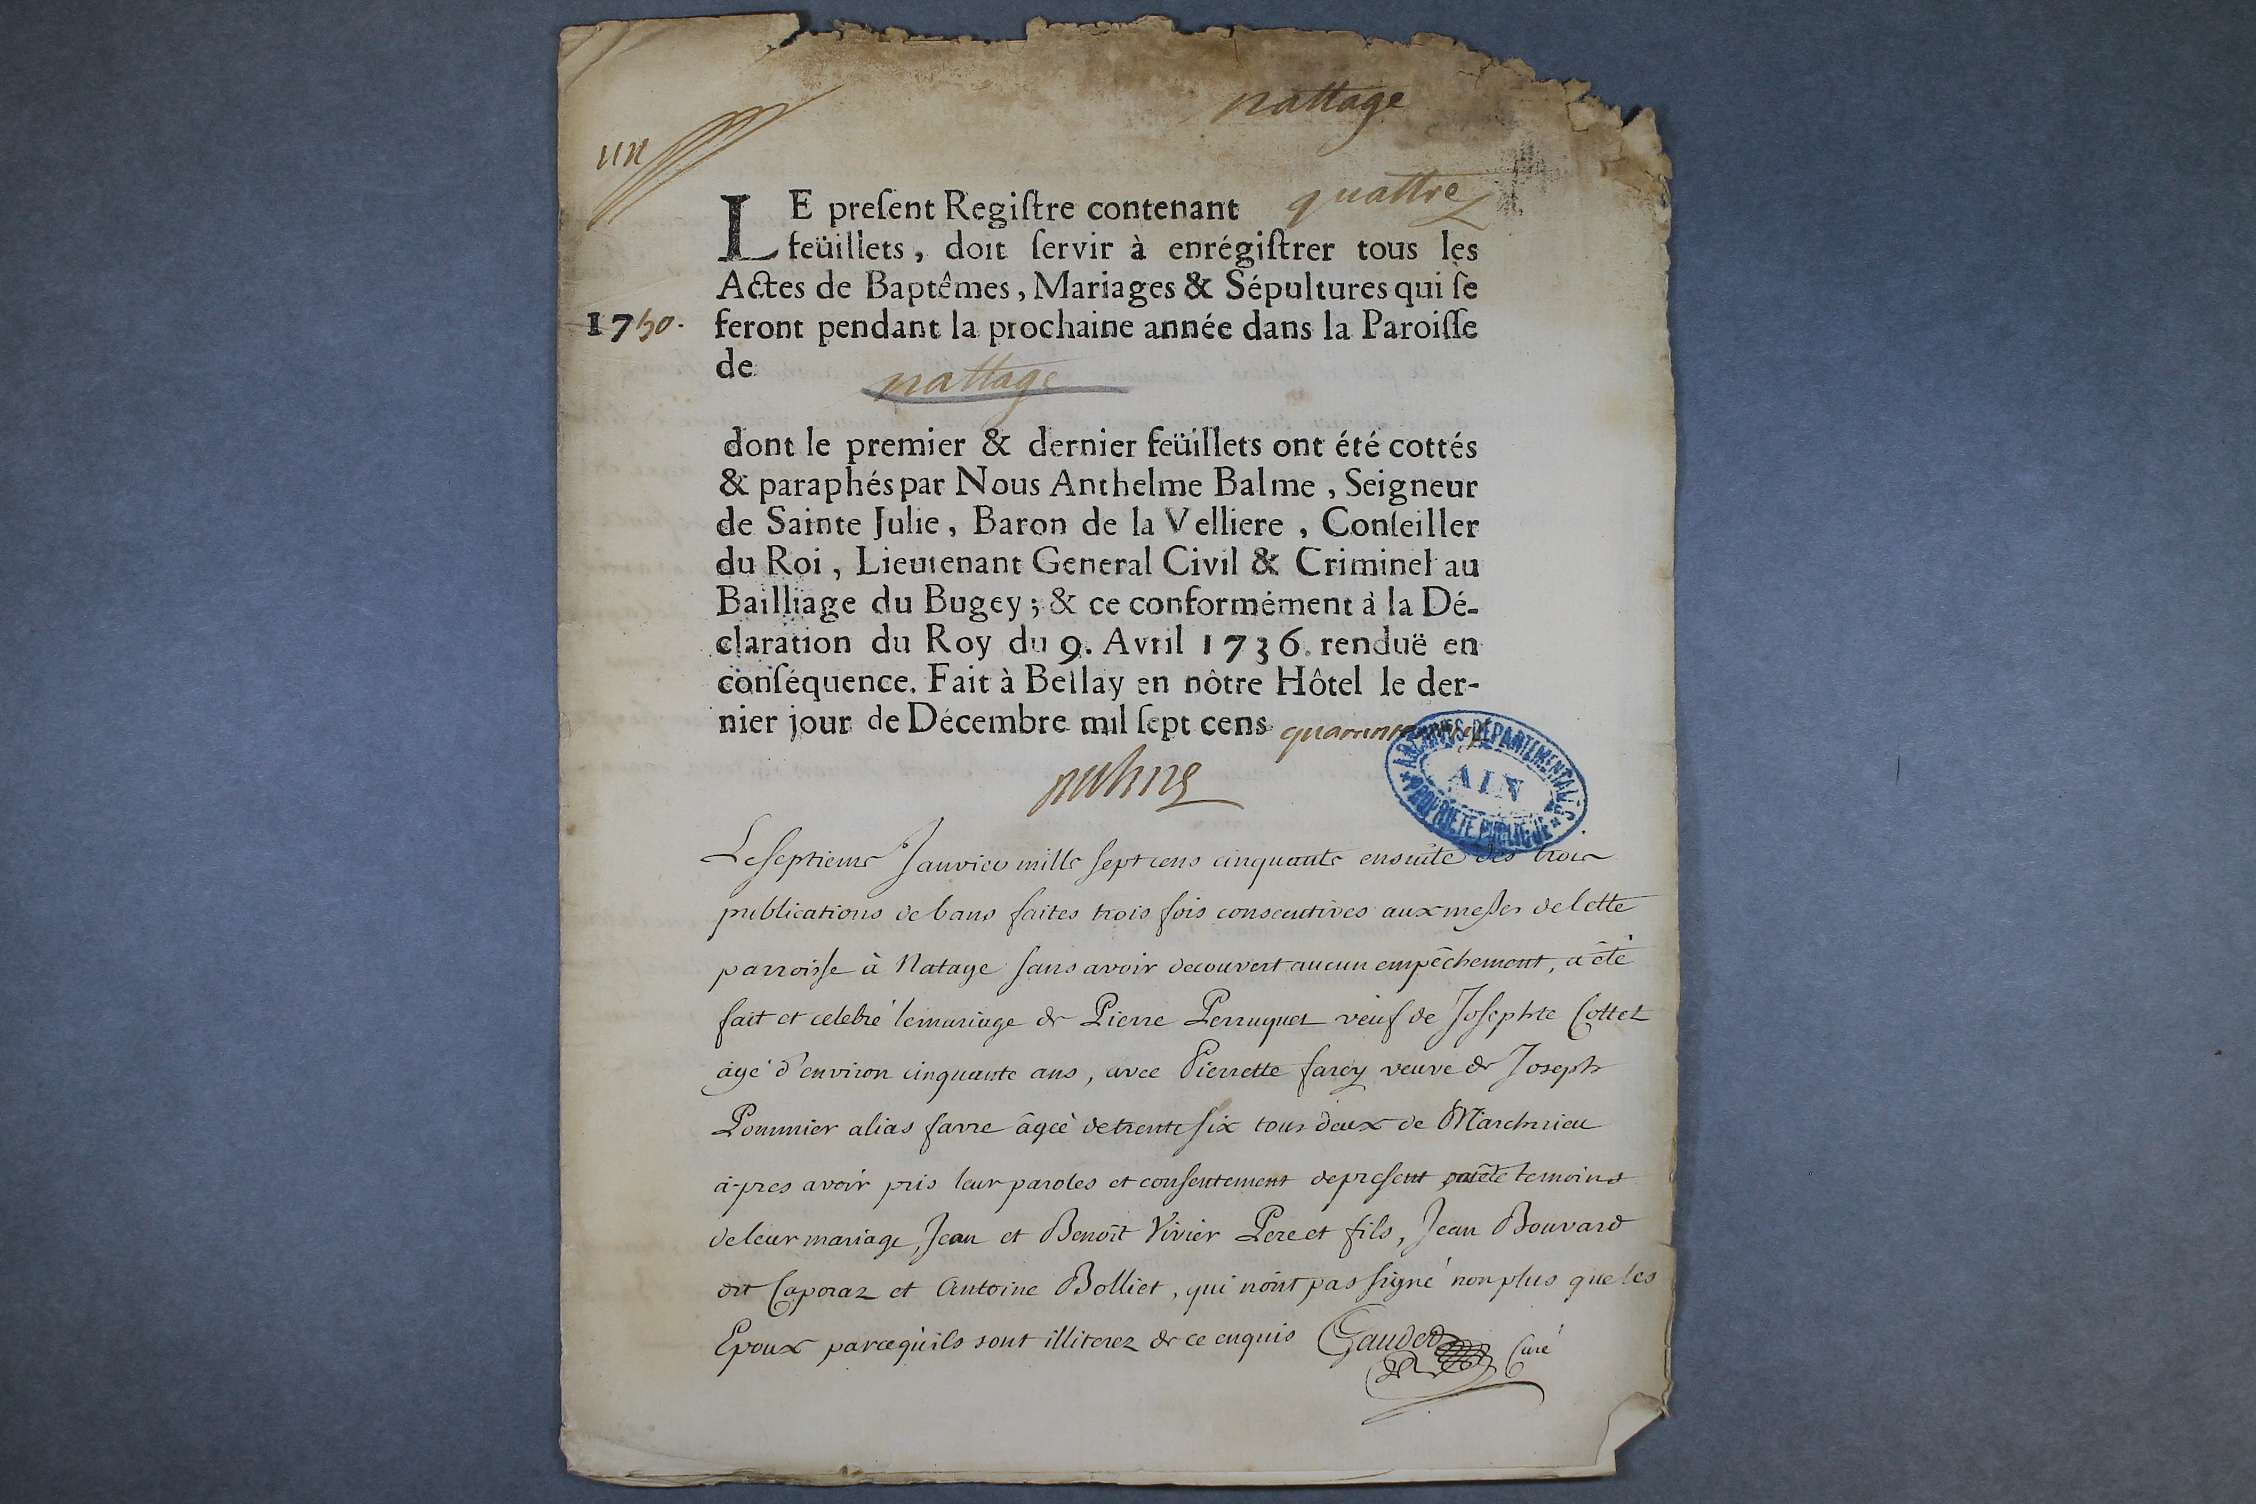 nattage
un
LE preſent Regiſtre contenant quattre
feüillets, doit ſervir à enrégiſtrer tous les
Actes de Baptêmes, Mariages & Sépultures qui ſe
1750. feront pendant la prochaine année dans la Paroiſſe
de nattage
dont le premier & dernier feüillets ont été cottés
& paraphés par Nous Anthelme Balme, Seigneur
de Sainte Julie, Baron de la Velliere, Conſeiller
du Roi, Lieutenant General Civil & Criminel au
Bailliage du Bugey; & ce conformément à la Dé-
claration du Roy du 9. Avril 1736. renduë en
conſéquence. Fait à Bellay en nôtre Hôtel le der-
nier jour de Décembre mil ſept cens
ARCHIVES DÉPARTEMENTALES
AIN
PROPRIÉTÉ PUBLIQUE
Le septieme Janvier mille sept cens cinquante ensuite des trois
publications de bans faites trois fois consecutives aux messes de cette
parroisse à Natage sans avoir decouvert aucun empêchement, a été
fait et celebré le mariage de Pierre Perruquet veuf de Josephte Cottet
âgé d'environ cinquante ans, avec Pierrette farcy veuve de Joseph
Pommier alias favre âgée de trente six tous deux de Marchnieu
a-pres avoir pris leur paroles et consentement de present temoins
de leur mariage, Jean et Benoît Vivier Pere et fils, Jean Bouvard
dit Caporaz et Antoine Bolliet, qui n'ont pas signé non plus que les
Epoux parcequ'ils sont illiterez de ce enquis Gaudet Curé